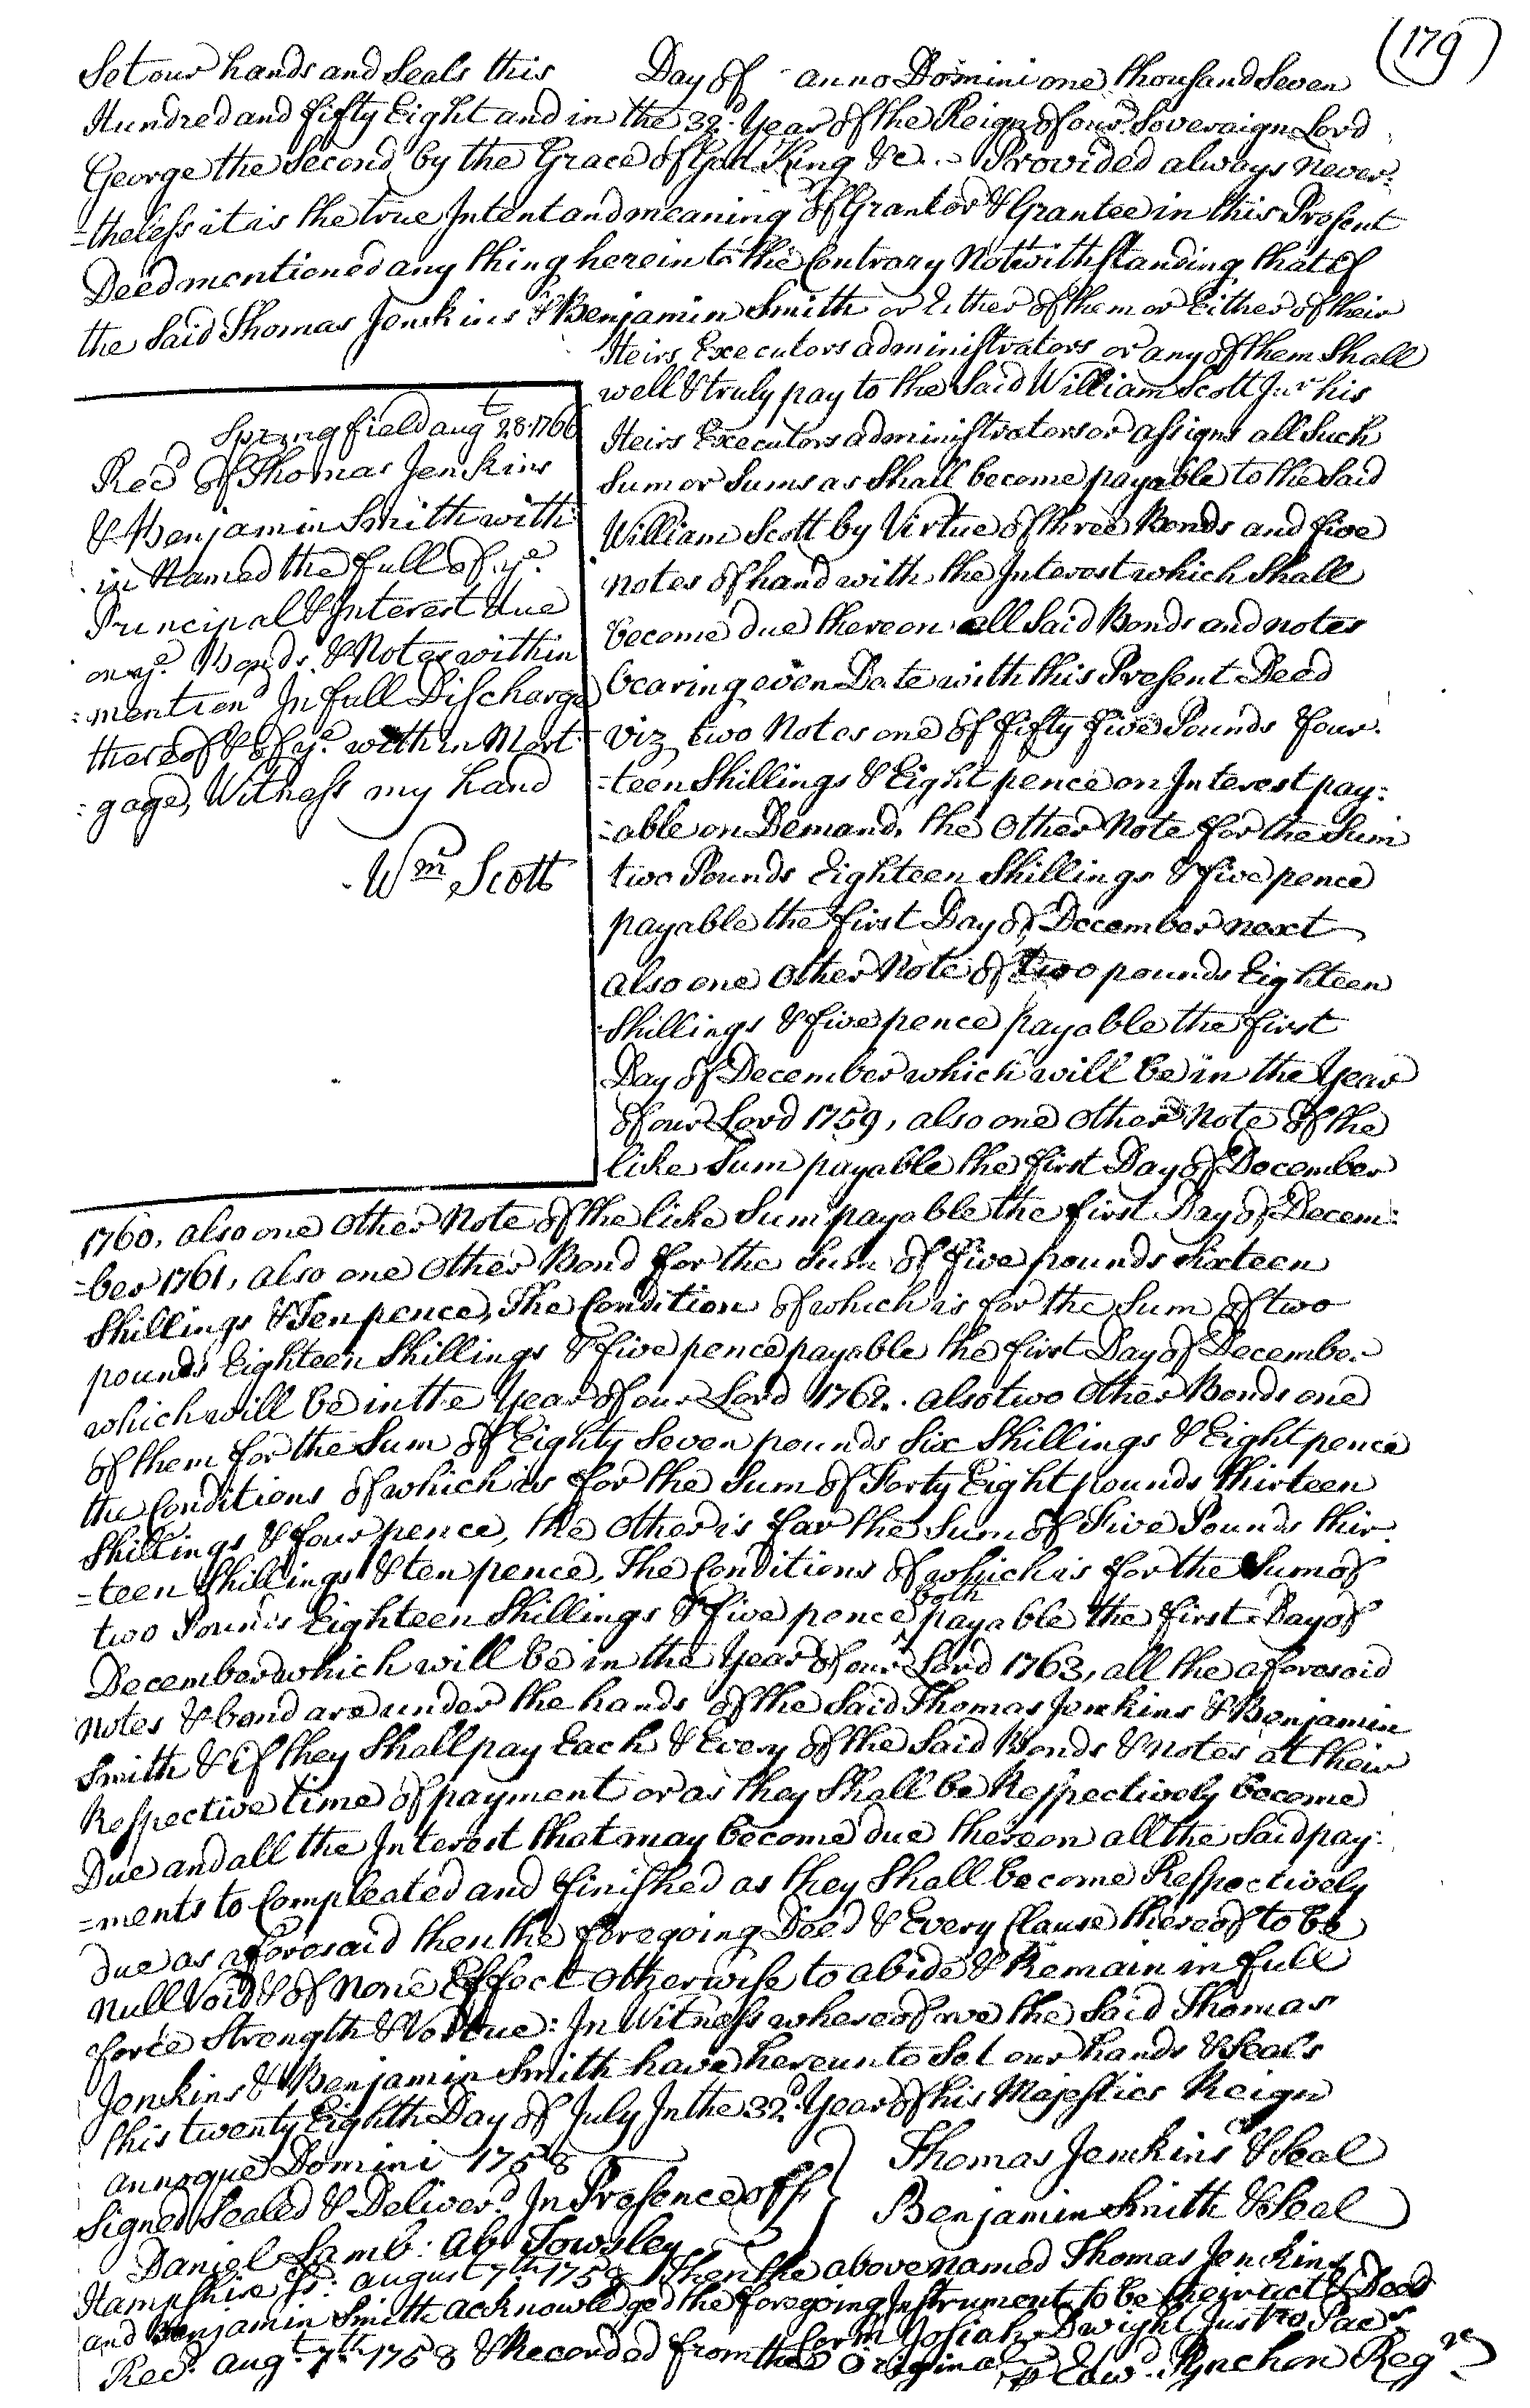 (179)
Set our hands and Seals this Day of anno Domini one thousand Seven
Hundred and fifty Eight and in the 32d. Year of the Reign of our Soveraign Lord
George the Second by the Grace of God King &c. - Provided always Never:
=theless it is the true Intent and meaning of Grantor & Grantee in this Present
Deed mentioned any thing herein to the Contrary Notwithstanding that if
the Said Thomas Jenkins & Benjamin Smith or Either of them or Either of their
Heirs Executors administrators or any of them Shall
well & truly pay to the Said William Scott Junr his
Heirs Executors administrators or assigns all Such
Sum or Sums as Shall become payable to the Said
William Scott by Virtue of three Bonds and five
notes of hand with the Interest which Shall
become due thereon all Said Bonds and notes
bearing even Date with this Present Deed
Viz two Notes one of fifty five Pounds four:
=teen Shillings & Eight pence on Interest pay:
=able on Demand, the Other Note for the Sum
two Pounds Eighteen Shillings & five pence
payable the first Day of December next
also one Other Note of two pounds Eighteen
Shillings & five pence payable the first
Day of December which will be in the Year
of our Lord 1759, also one Other Note of the
like Sum payable the first Day of December
Springfield augt 28 1766
Recd of Thomas Jenkins
& Benjamin Smith with
in Named the full of ye
Principal & Interest due
on ye. Bonds & Notes within
:mentiond In full Discharge
thereof & of ye. within Mort
:gage, Witness my hand
Wm Scott
1760, also one Other Note of the like Sum payable the first Day of Decem:
=ber 1761, also one Other Bond for the Sum of five pounds Sixteen
Shillings & Ten pence, The Condition of which is for the Sum of two
pounds Eighteen Shillings & five pence payable the first Day of December
which will be in the Year of our Lord 1762. also two Other Bonds one
of them for the Sum of Eighty Seven pounds Six Shillings & Eight pence
the Conditions of which is for the Sum of Forty Eight pounds thirteen
Shillings & four pence, the Other is for the Sum of Five Pounds thir:
=teen Shillings & ten pence, The Conditions of which is for the Sum of
two Pounds Eighteen Shillings & five pence both payable the first Day of
December which will be in the Year of our Lord 1763, all the aforesaid
notes & bond are under the hands of the Said Thomas Jenkins & Benjamin
Smith & if they Shall pay Each & Every of the Said Bonds & notes at their
Respective time of payment or as they Shall be Respectively become
Due and all the Interest that may become due thereon all the Said pay:
=ments to Compleated and finished as they Shall become Respectively
due as aforesaid then the foregoing Deed & Every Clause thereof to be
null Void & of None Effect Otherwise to abide & Remain in full
force Strength & Vertue: In Witness whereof we the Said Thomas
Jenkins & Benjamin Smith have hereunto Set our hands & Seals
this twenty Eighth Day of July In the 32d. Year of his Majesties Reign
annoque Domini 1758 Thomas Jenkins & Seal
Signed Sealed & Deliverd. In Presence off } Benjamin Smith & Seal
Daniel Lamb: Abr Towsley
Hampshire ss: august 7th. 1758 Then the above named Thomas Jenkins
and Benjamin Smith acknowledged the foregoing Instrument to be their act & Deed
Corm Josiah Dwight Justice Pacs
Recd. augt. 7th. 1758 & Recorded from the Original p Edwd. Pynchon Regr